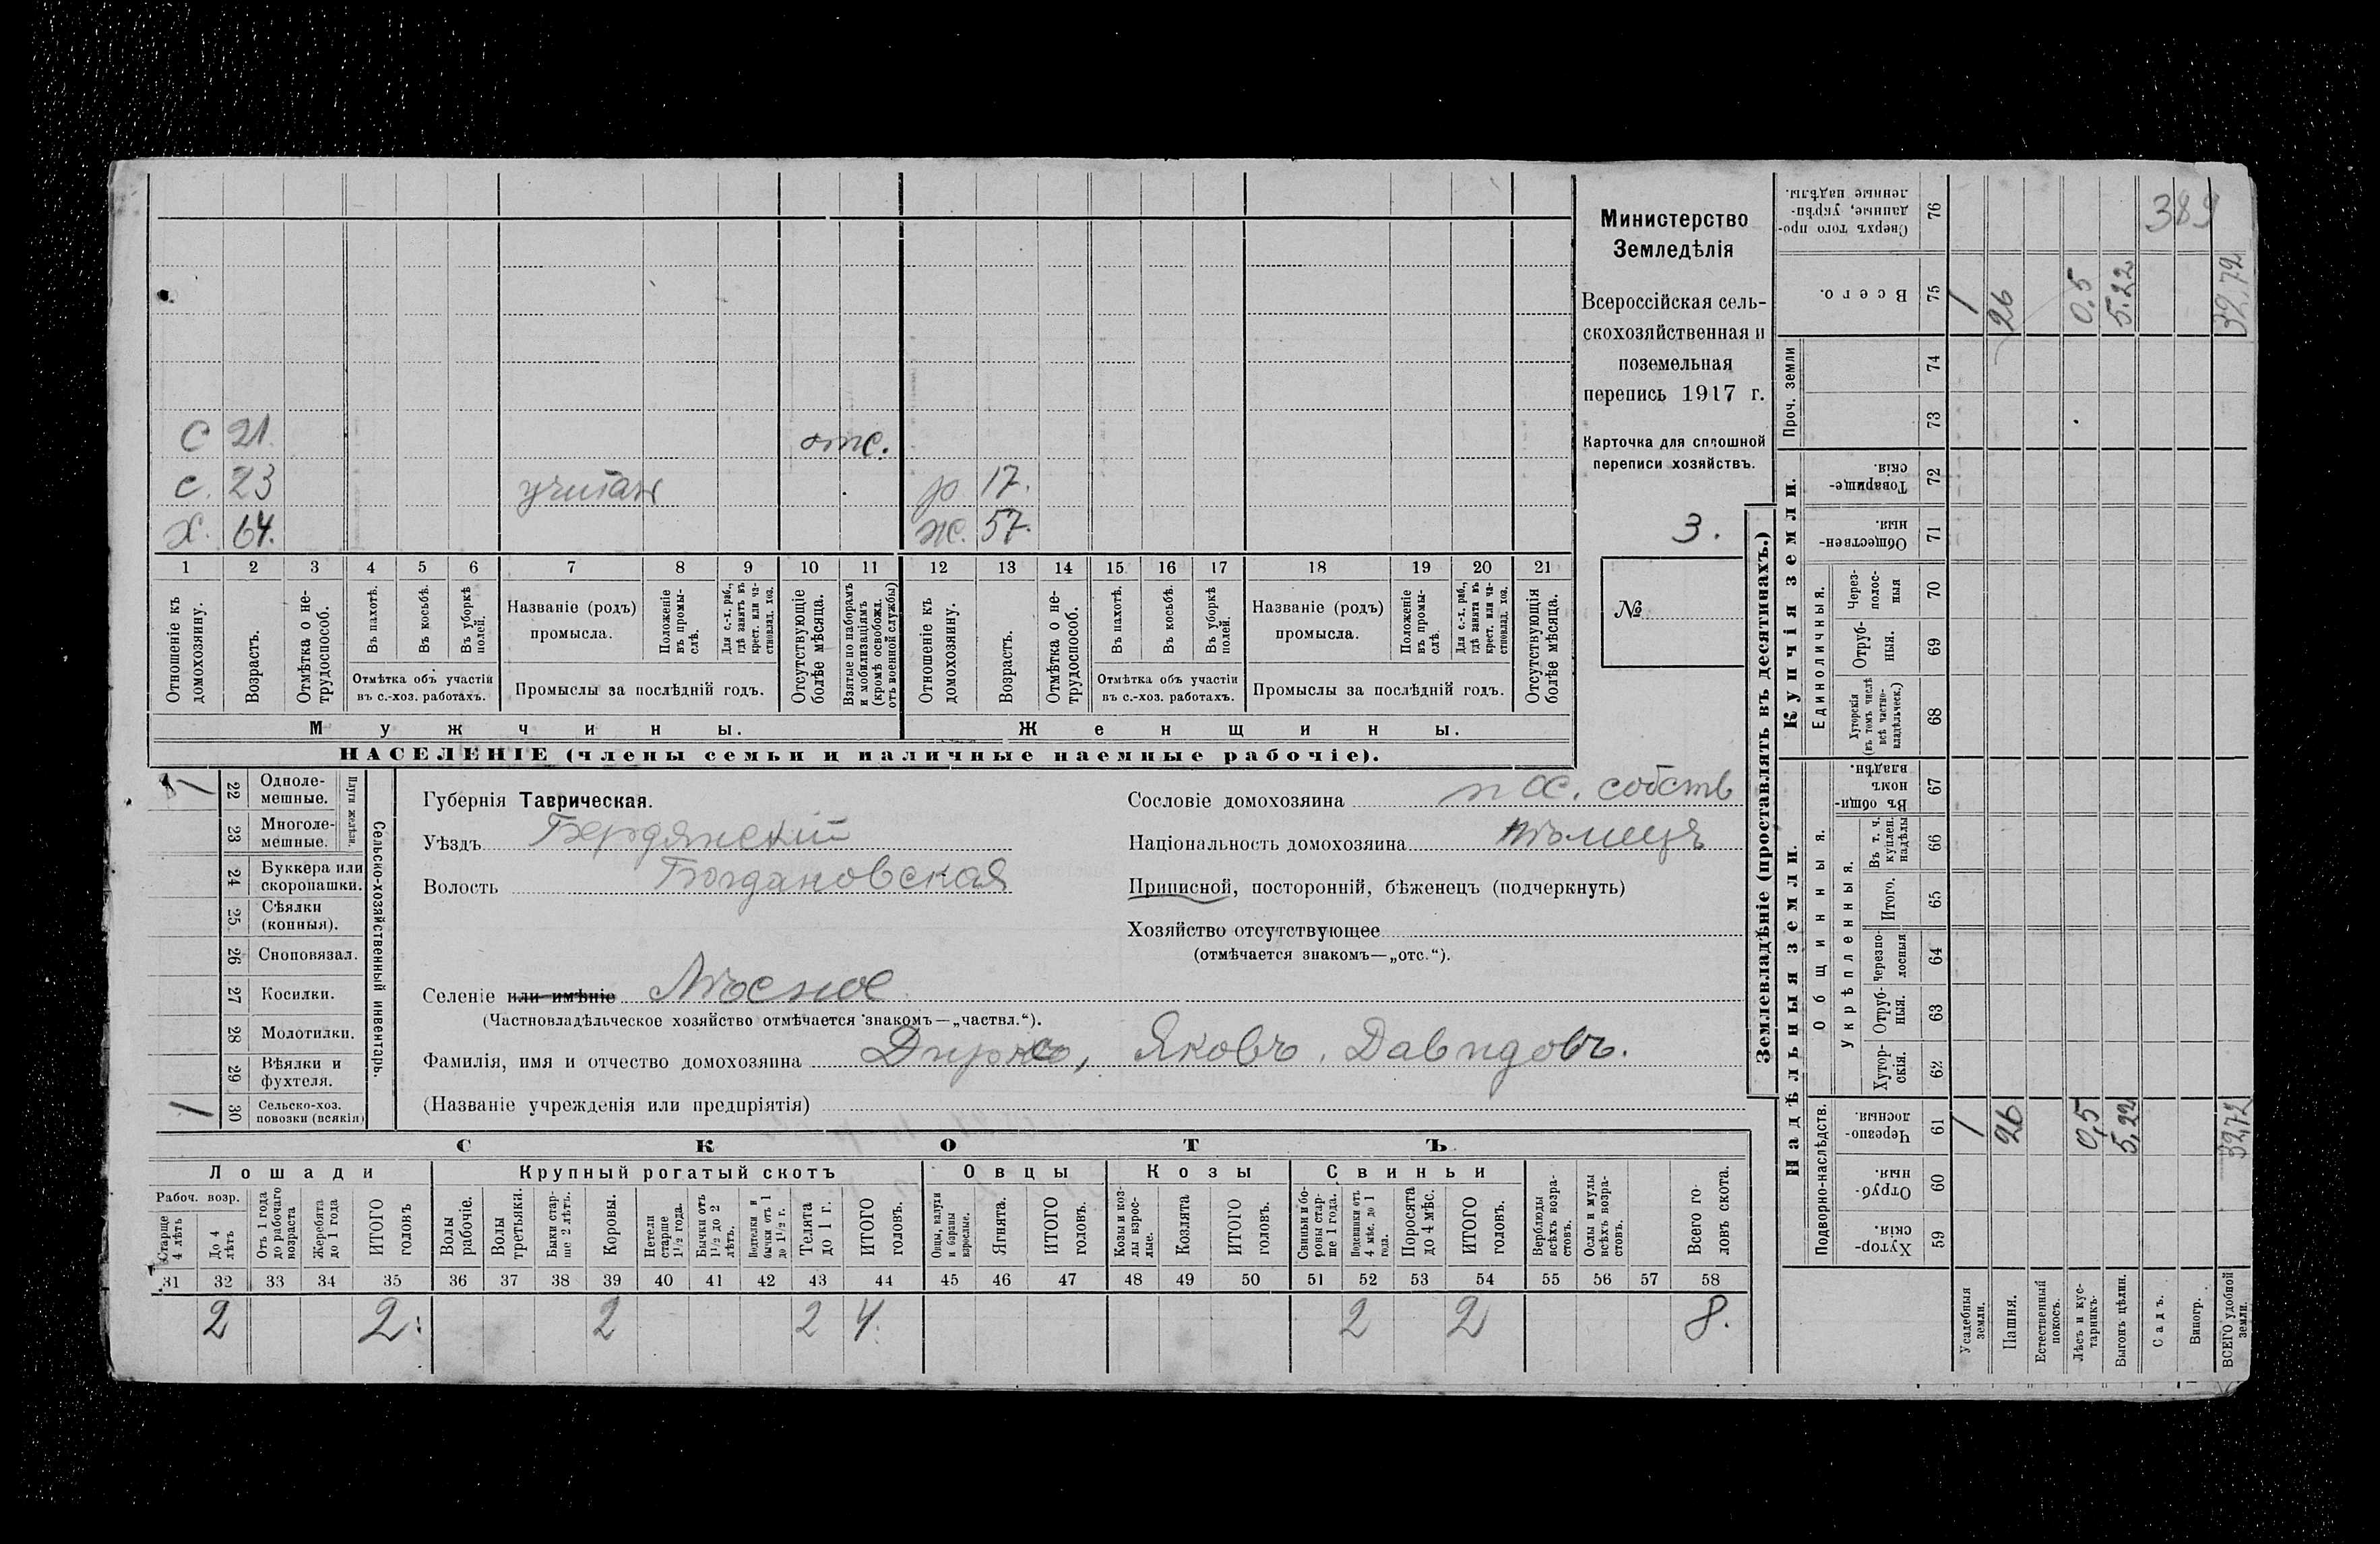 С 21 отс.
с. 23 учит р 17.
Х. 64. ж. 57.
1 2 3 4 5 6 7 8 9 10 11 12 13 14 15 16 17 18 19 20 21
Отношеніе къ домохозяину.
Возрастъ.
Отмѣтка о не-
трудоспособ.
Въ пахотѣ.
Въ косьбѣ.
Въ уборкѣ
полей.
Отмѣтка объ участіи
въ с.-хоз. работахъ.
Названіе (родъ)
промысла.
Положеніе
въ промы-
слѣ.
Для с.-х. раб.,
гдѣ занятъ въ
крест. или ча-
стновлад. хоз.
Промыслы за послѣдній годъ.
Отсутствующіе
болѣе мѣсяца.
Взятые по наборамъ
и мобилизаціямъ
(кромѣ освобожд.
отъ военной службы)
Отношеніе къ
домохозяину.
Возрастъ.
Отмѣтка о не-
трудоспособ.
Въ пахотѣ.
Въ косьбѣ.
Въ уборкѣ
полей.
Отмѣтка объ участіи
въ с.-хоз. работахъ.
Названіе (родъ)
промысла.
Положеніе
въ промы-
слѣ.
Для с.-х. раб.,
гдѣ занята въ
крест. или ча-
стновлад. хоз.
Промыслы за послѣдній годъ.
Отсутствующія
болѣе мѣсяца.
Мужчины. Женщины.
НАСЕЛЕНІЕ (члены семьи и наличные наемные рабочіе).
Министерство
Земледѣлія
Всероссійская сель-
скохозяйственная и
поземельная
перепись 1917 г.
Карточка для сплошной
переписи хозяйствъ.
3.
№
Сельско-хозяйственный инвентарь.
Плуги желѣзн.
1 22 Одноле-
мешные.
23 Многоле-
мешные.
24 Буккера или
скоропашки.
25 Сѣялки
(конныя).
26 Сноповязал.
27 Косилки.
28 Молотилки.
29 Вѣялки и
фухтеля.
1 30 Сельско-хоз.
повозки (всякія)
Губернія Таврическая.
Уѣздъ Бердянскій
Волость Богдановская
Селеніе или имѣніе
(Частновладѣльческое хозяйство отмѣчается знакомъ—„частвл.“).
Фамилія, имя и отчество домохозяина Дирксъ, Яковъ. Давидовъ.
(Названіе учрежденія или предпріятія)
Сословіе домохозяина собств
Національность домохозяина нѣмецъ
Приписной, посторонній, бѣженецъ (подчеркнуть)
Хозяйство отсутствующее
(отмѣчается знакомъ—„отс.“).
СКОТЪ
Лошади Крупный рогатый скотъ Овцы Козы Свиньи
Рабоч. возр.
Старше
4 лѣтъ
До 4
лѣтъ
Отъ 1 года
до рабочаго
возраста
Жеребята
до 1 года
ИТОГО
головъ
Волы
рабочіе.
Волы
третьяки.
Быки стар-
ше 2 лѣтъ.
Коровы.
Нетели
старше
1½ года.
Бычки отъ
1½ до 2
лѣтъ.
Подтелки и
бычки отъ 1
до 1½ г.
Телята
до 1 г.
ИТОГО
головъ.
Овцы, валухи
и бараны
взрослые.
Ягнята.
ИТОГО
головъ.
Козы и коз-
лы взрос-
лые.
Козлята
ИТОГО
головъ.
Свиньи и бо-
ровы стар-
ше 1 года.
Подсвинки отъ
4 мѣс. до 1
года.
Поросята
до 4 мѣс.
ИТОГО
головъ.
Верблюды
всѣхъ возра-
стовъ.
Ослы и мулы
всѣхъ возра-
стовъ.
Всего го-
ловъ скота.
31 32 33 34 35 36 37 38 39 40 41 42 43 44 45 46 47 48 49 50 51 52 53 54 55 56 57 58
2 2 2 2 4. 2 2 8.
Землевладѣніе (проставлять въ десятинахъ.)
Надѣльныя земли. Купчія земли. Проч. земли
Подворно-наслѣдств. Общинныя. Единоличныя.
Укрѣпленныя.
59 Хутор-
скія.
60 Отруб-
ныя.
61 Черезпо-
лосныя.
62 Хутор-
скія.
63 Отруб-
ныя.
64 Черезпо-
лосныя
65 Итого.
66 Въ т. ч.
куплен.
надѣлы
67 Въ общи-
номъ
владѣн.
68 Хуторскія
(въ томъ числѣ
всѣ частно-
владѣльческ.)
69 Отруб-
ныя.
70 Через-
полос-
ныя
71 Обществен-
ныя.
72 Товарище-
скія.
73
74
75 Всего.
76 Сверхъ того про-
данные, укрѣп-
ленные надѣлы.
389
Усадебныя
земли. 1 1
Пашня. 26 26
Естественный
покосъ.
Лѣсъ и кус-
тарникъ. 0,5 0.5
Выгонъ цѣлин. 5,22 5.22
Садъ.
Виногр.
ВСЕГО удобной
земли. 32,72 32,72